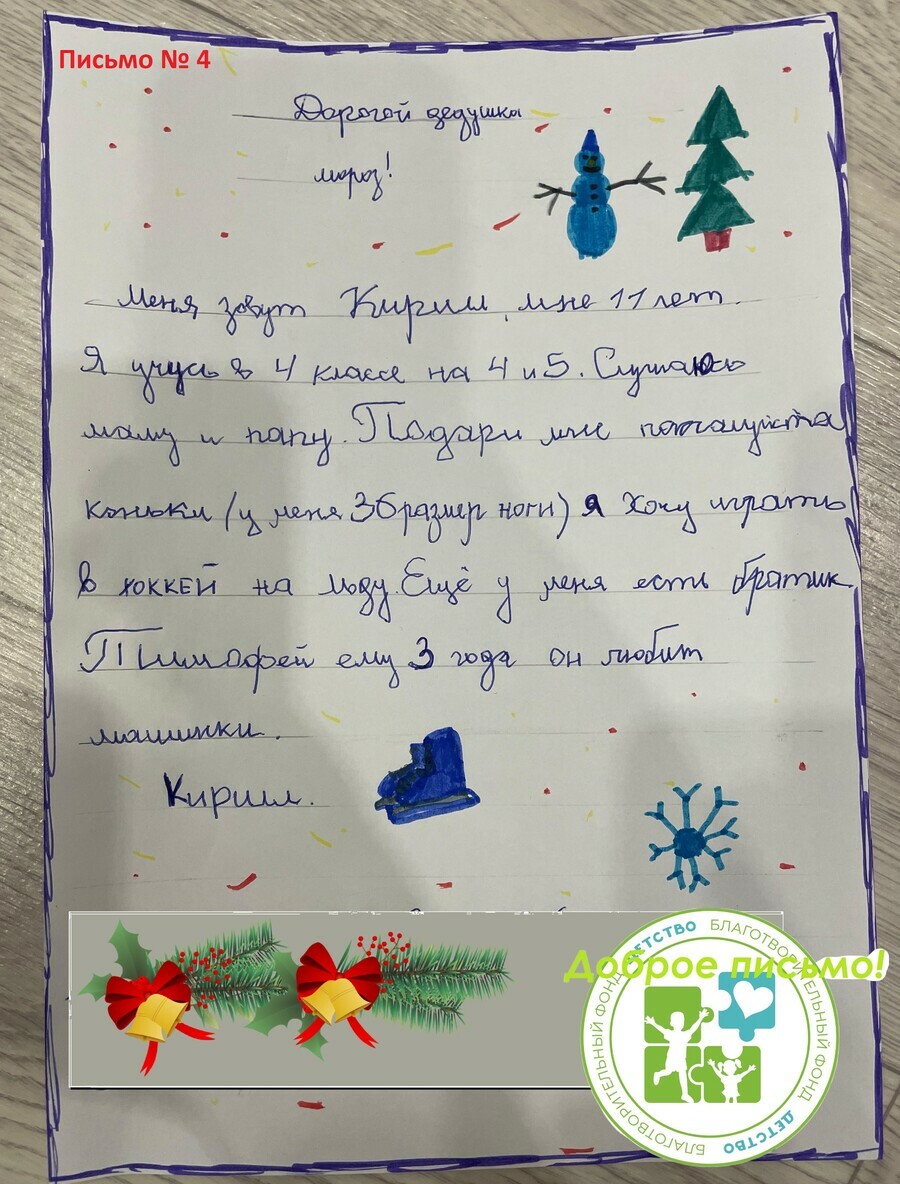 Письмо № 4
Дорогой дедушка
мороз!
Меня зовут Кирилл, мне 11 лет.
Я учусь в 4 классе на 4 и 5. Слушаюсь
маму и папу. Подари мне пожалуйста
коньки (у меня 36 размер ноги) я хочу играть
в хоккей на льду. Ещё у меня есть братик
Тимофей ему 3 года он любит
машинки.
Кирилл.
Доброе письмо!
БЛАГОТВОРИТЕЛЬНЫЙ ФОНД ДЕТСТВО
БЛАГОТВОРИТЕЛЬНЫЙ ФОНД ДЕТСТВО